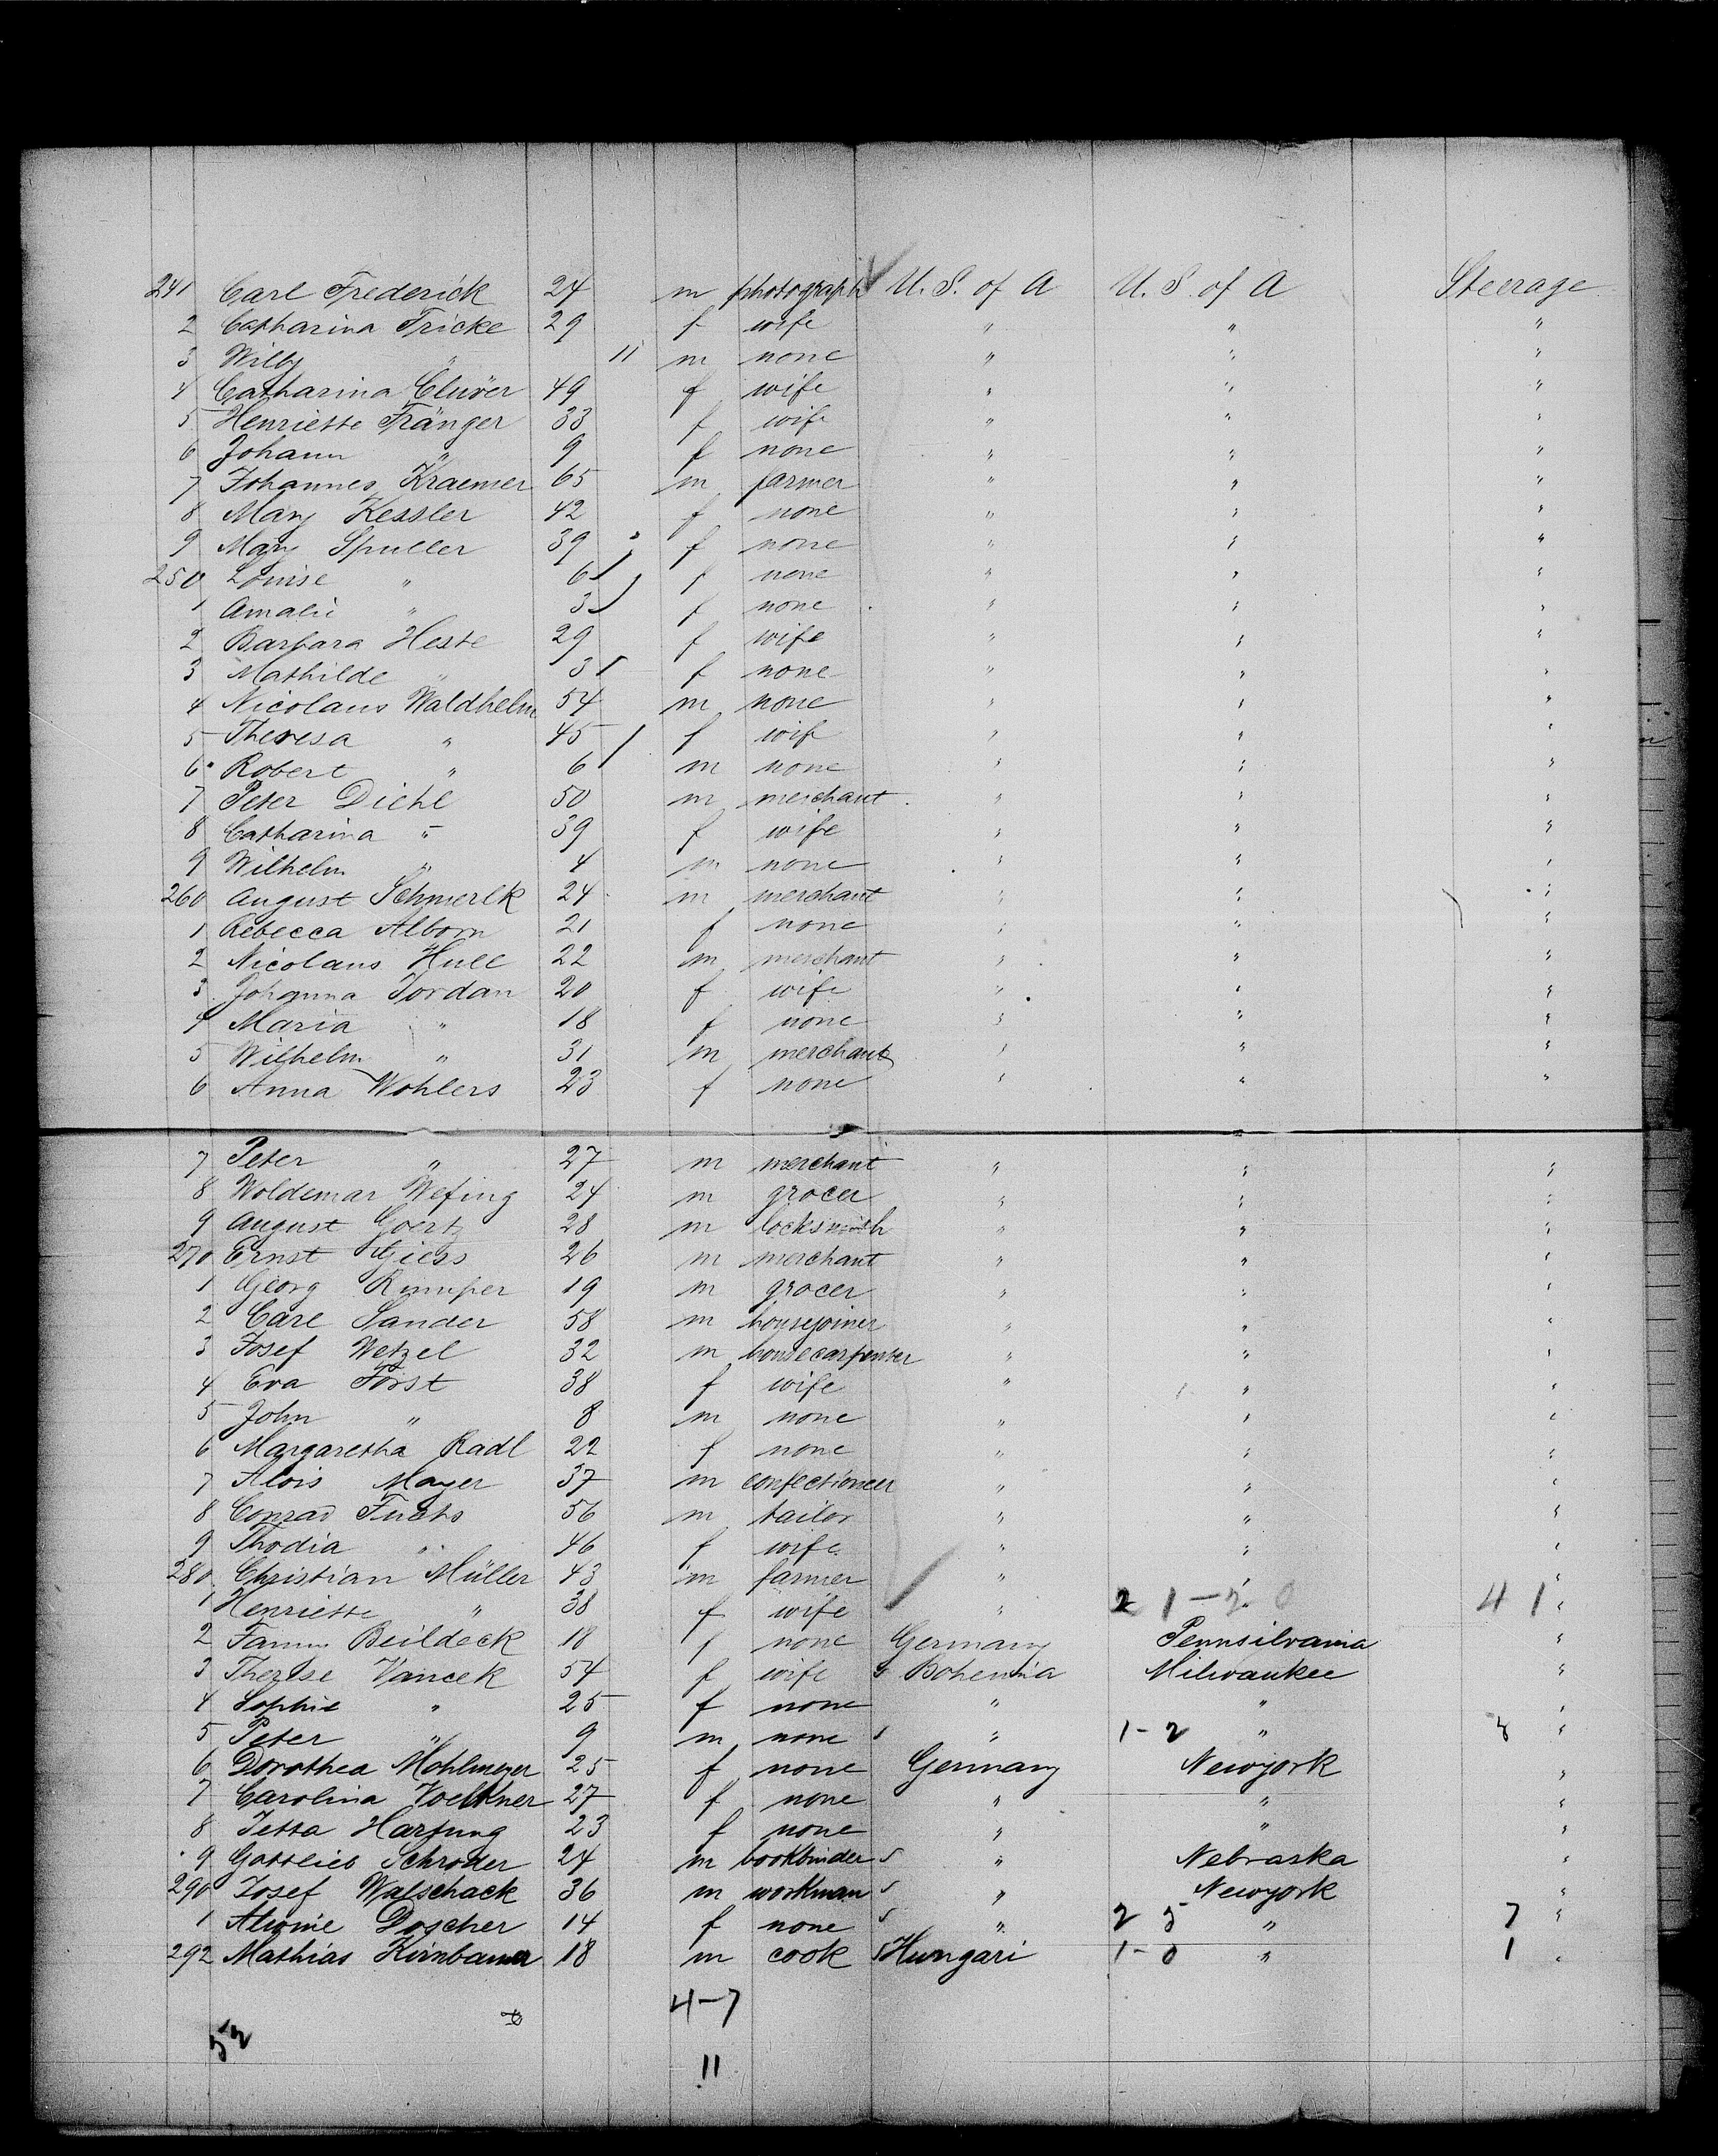 241 Carl Frederick 24 m photograph U.S. of A U.S. of A Steerage
2 Catharina Fricke 29 f wife " " "
3 Willy " 11 m none " " "
4 Catharina Clüver 49 f wife " " "
5 Henriette Fränger 33 f wife " " "
6 Johann " 9 f none " " "
7 Johannes Kraemer 65 m farmer " " "
8 Mary Kessler 42 f none " " "
9 Mary Spuller 39 f none " " "
250 Louise " 6 f none " " "
1 Amalie " 3 f none " " "
2 Barbara Heste 29 f wife " " "
3 Mathilde " 3 f none " " "
4 Nicolaus Waldhelm 54 m none " " "
5 Theresa " 45 f wif " " "
6 Robert " 6 m none " " "
7 Peter Diehl 50 m merchant " " "
8 Catharina " 39 f wife " " "
9 Wilhelm " 4 m none " " "
260 August Schmerlk 24 m merchant " " "
1 Rebecca Alborn 21 f none " " "
2 Nicolaus Hull 22 m merchant " " "
3 Johanna Jordan 20 f wife " " "
4 Maria " 18 f none " " "
5 Wilhelm " 31 m merchant " " "
6 Anna Wohlers 23 f none " " "
7 Peter " 27 m merchant " " "
8 Woldemar Wefing 24 m grocer " " "
9 August Goertz 28 m locksmith " " "
270 Ernst Giess 26 m merchant " " "
1 Georg Rumper 19 m grocer " " "
2 Carl Sander 58 m housejoiner " " "
3 Josef Wetzel 32 m housecarpenter " " "
4 Eva Forst 38 f wife " " "
5 John " 8 m none " " "
6 Margaretha Radl 22 f none " " "
7 Alois Mayer 37 m confectioneer " " "
8 Conrad Fuchs 56 m tailor " " "
9 Thodia " 46 f wife " " "
280 Christian Müller 43 m farmer " " "
1 Henriette " 38 f wife " 21-20 41 "
2 Beildeck 18 f none Germany Pennsilvania "
3 Therese Vancek 54 f wife Bohemia Milwaukee "
4 Sophie " 25 f none " " "
5 Peter " 9 m none " 1-2 " 3 "
6 Dorothea Mohlmeyer 25 f none Germany Newyork "
7 Carolina Voelkner 27 f none " " "
8 Jetta Hartung 23 f none " " "
9 Gottlieb Schroder 24 m bookbinder " Nebraska "
290 Josef Walschack 36 m workman " Newyork "
1 Alwine Doscher 14 f none " 2 5 " 7 "
292 Mathias Kirnbauer 18 m cook Hungari 1-0 " 1 "
4-7
52
11